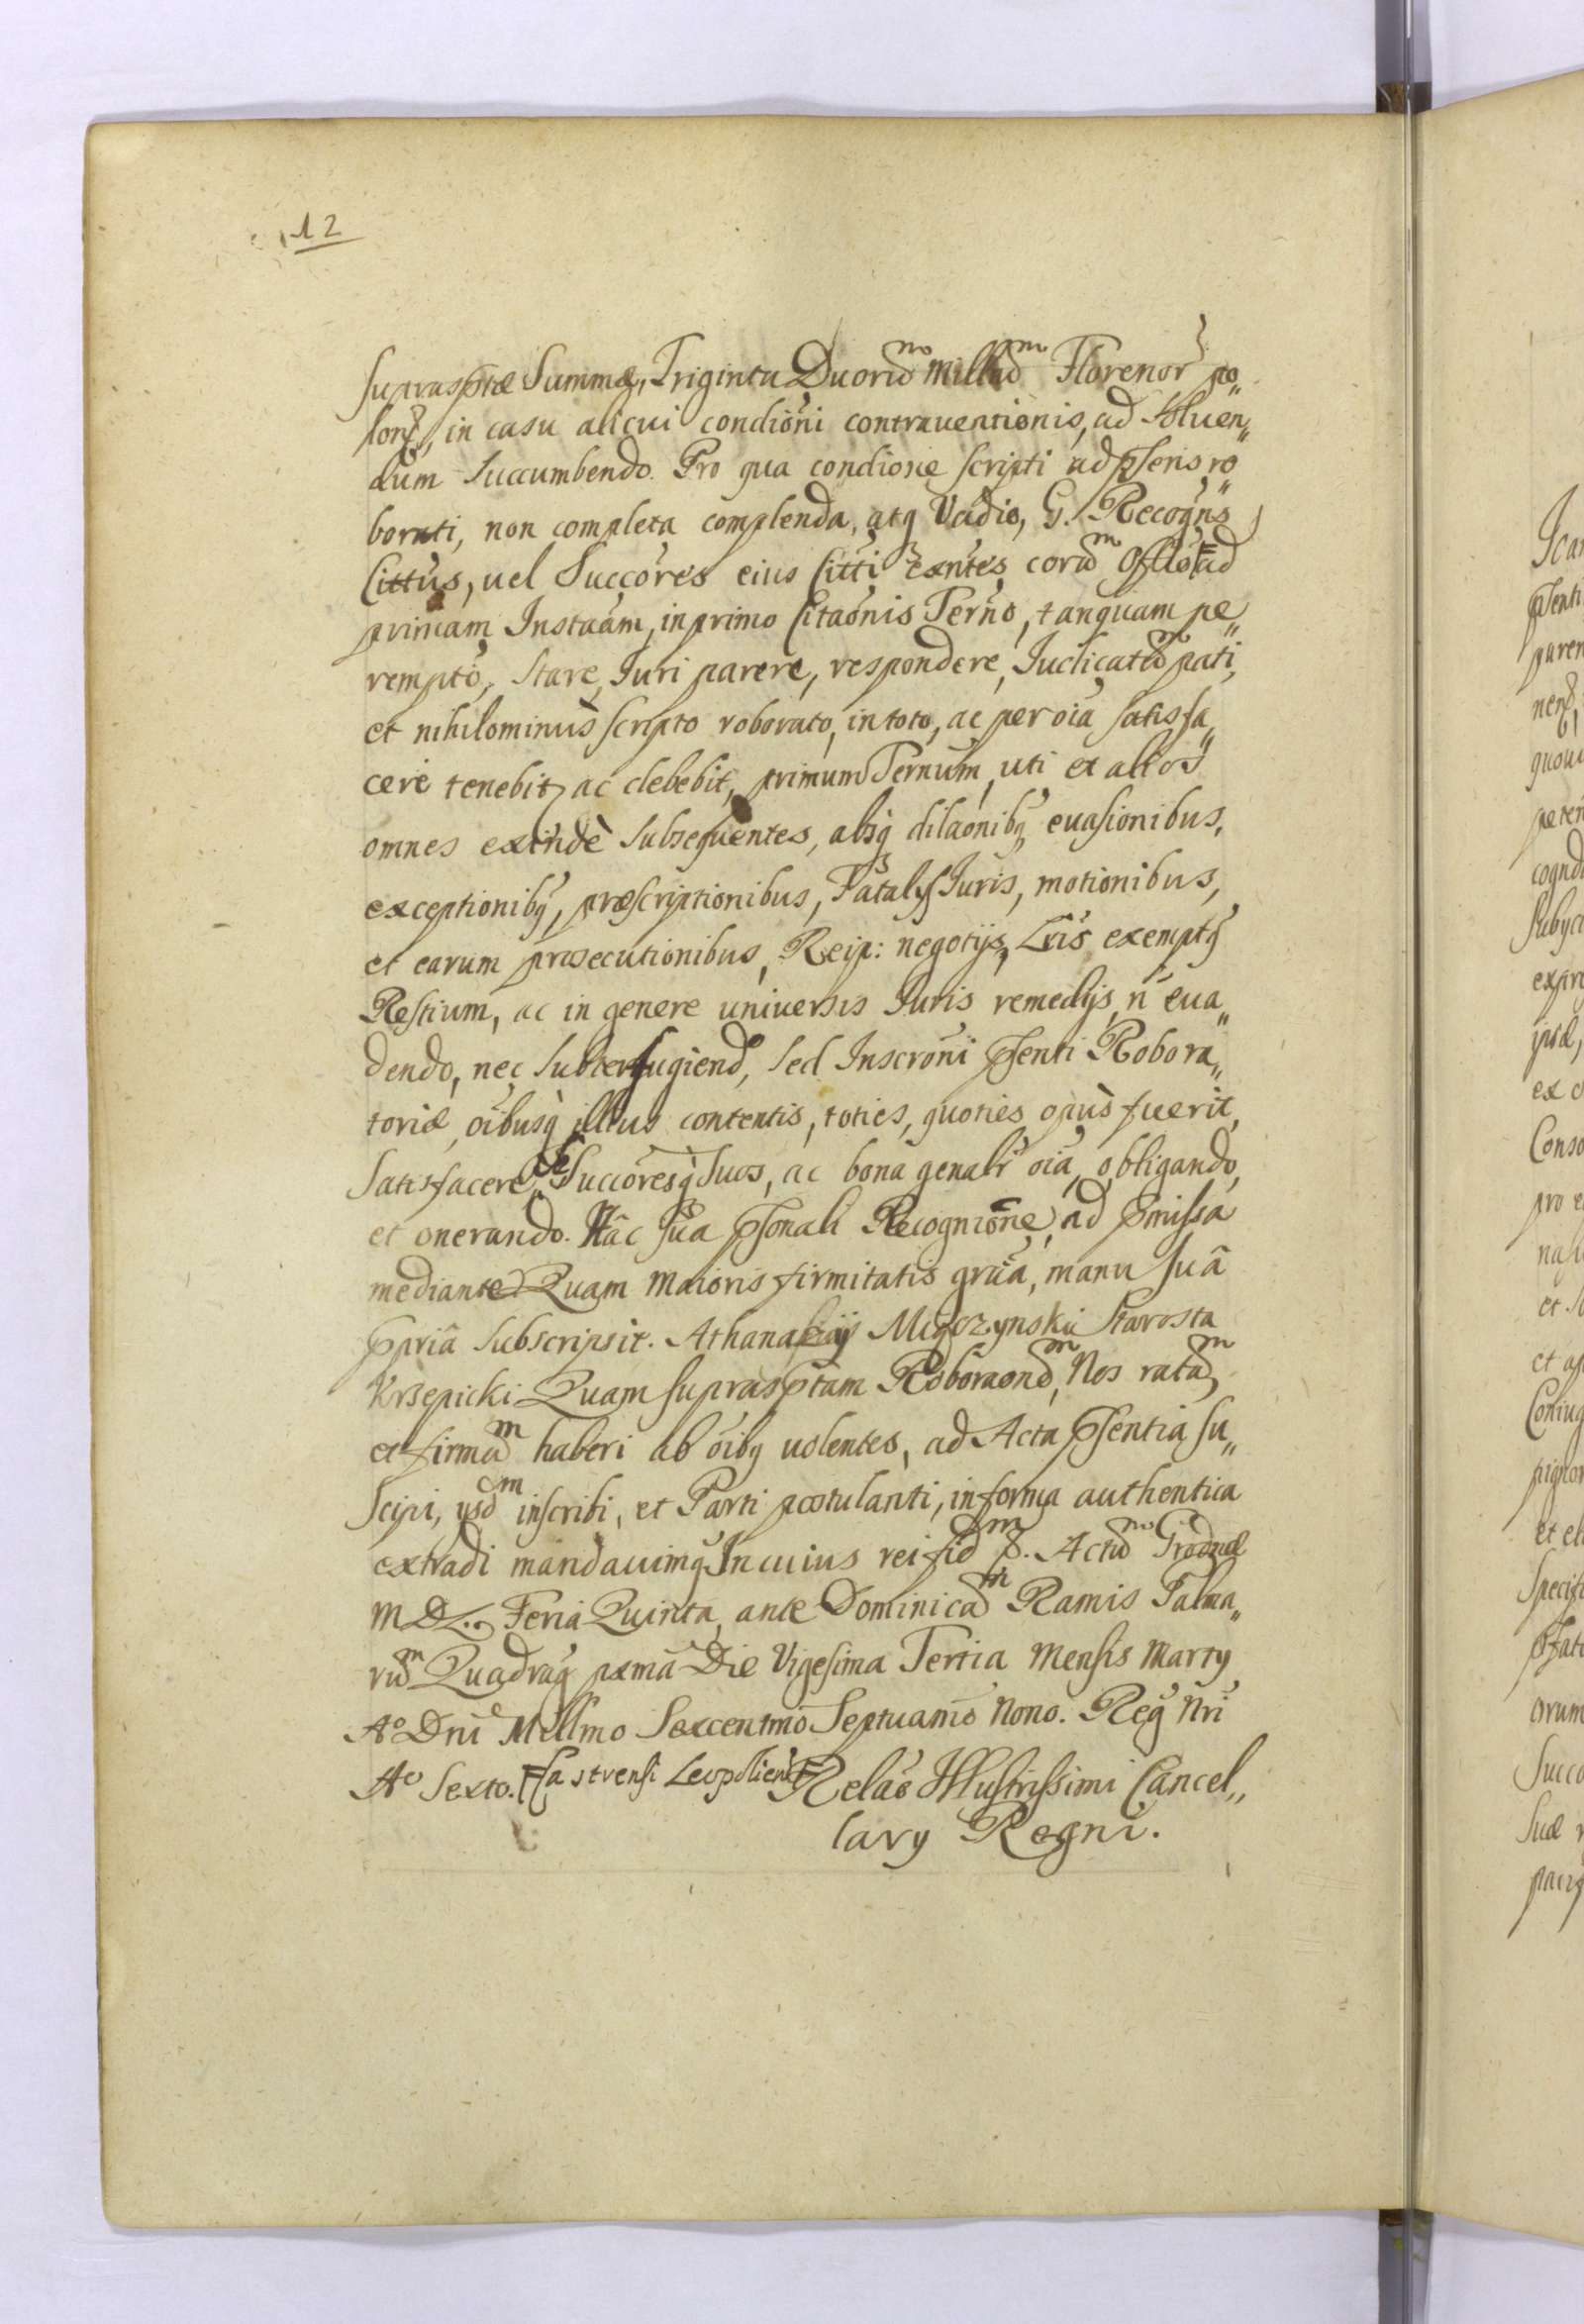 12
suprasptæ Summæ, Triginta Duorũm Millium Florenor po„
lonq, in casu alicui condiõni contrauentionis, ad soluen„
dum succumbendo. Pro qua condione scripti ad psens, ro„
borati, non completa complenda, atq Vadio, G. Recogñs
Cittus, uel Succõres eius Citti exñtes, corã m Offlo ad
primam Instãam, in primo Citãonis Terño, tanquam pe„
rempto, stare, Iuri parere, respondere, Iudicatũm pati,
et nihilominùs scripto roborato, in toto, ac per oĩa satisfa„
cere tenebit, ac debebit, primum Ternum, uti et alios
omnes exindè subsequentes, absq dilãonibq, euasionibus,
exceptionibq, præscriptionibus, Fatalijs Iuris, motionibus,
et earum prosecutionibus, Reip: negotijs, Lris exemptq
Restium, ac in genere uniuersis Iuris remedijs, ñ eua„
dendo, nec subterfugiend, sed Inscrõni psenti Robora„
toriæ, oĩbusq illius contentis, toties, quoties opùs fuerit,
satisfacere, se Succõresq suos, ac bona genalr oĩa, obligando,
et onerando. Hâc sũa psonali Recogniõne, ad pmissa
mediante. Quam maioris firmitatis grãa, manu suâ
ppriâ subscripsit. Athanazy Miączynski Starosta
Krzepicki. Quam suprasptam Roborãonem, Nos ratam,
et firmam haberi ab oĩbq uolentes, ad Acta psentia su„
scipi, ysdm inscribi, et Parti postulanti, in forma authentica
extradi mandauimq. In cuius rei fidm p. Actũm Grodnæ
M D L.. Feria Quinta, ante Dominicam Ramis Palma„
rũm Quadrag pxma Die Vigesima Tertia Mensis Marty
Aº Dni Millmo Sexcentmo Septuamo Nono. Reg Nri
Aº Sexto. Castrensi Leopoliensi Relão Illustrissimi Cancel„
lary Regni.